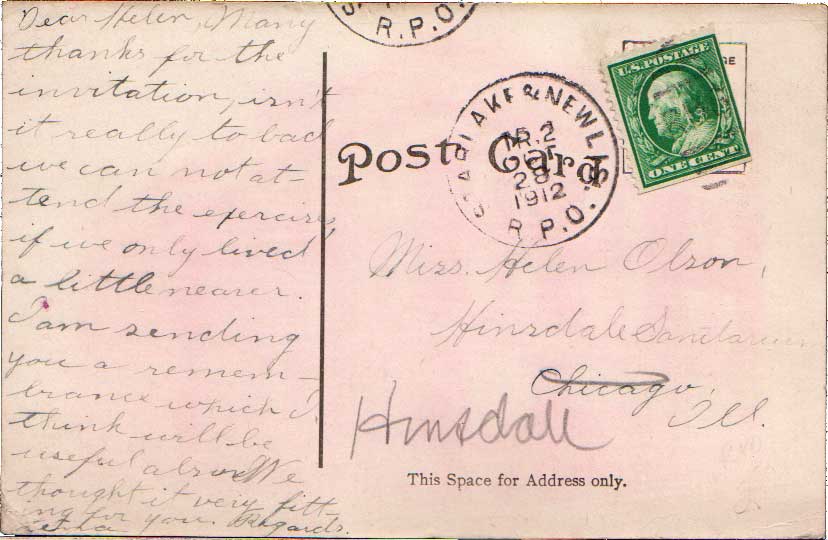 Dear Helen, Many
thanks for the
invitation, isn't
it really to bad
we can not at-
tend the exercise,
if we only lived
a little nearer.
I am sending
you a remem-
brance which I
think will be
useful also. We
thought it very fitt-
ing for you. Regards.
R.P.O.
STARLAKE & NEW LIS
TR.2
OCT
28
1912
R.P.O.
U.S. POSTAGE
ONE CENT
Post Card
Miss. Helen Olson,
Hinsdale Sanitarium
Chicago,
Ill.
Hinsdale
This Space for Address only.